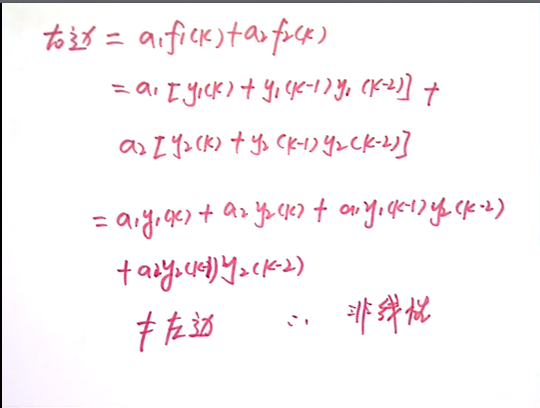 右边 = a₁f₁(k)+a₂f₂(k)
= a₁[y₁(k)+y₁(k-1)y₁(k-2)]+
a₂[y₂(k)+y₂(k-1)y₂(k-2)]
= a₁y₁(k)+a₂y₂(k)+a₁y₁(k-1)y₂(k-2)
+a₂y₂(k-1)y₂(k-2)
≠左边 ∴ 非线性